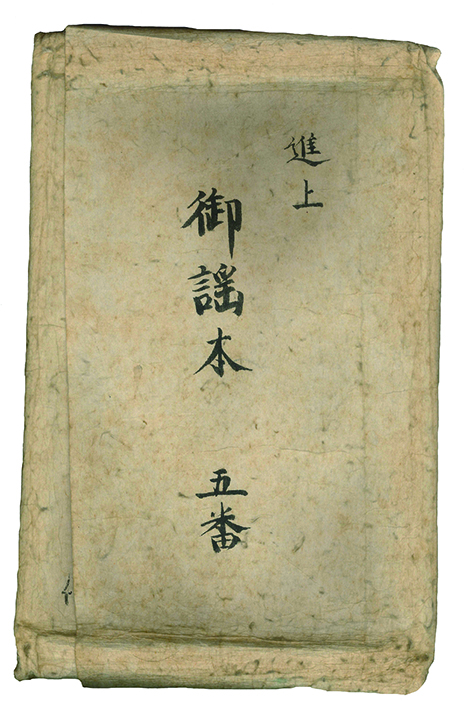 進上
御謡本 五番